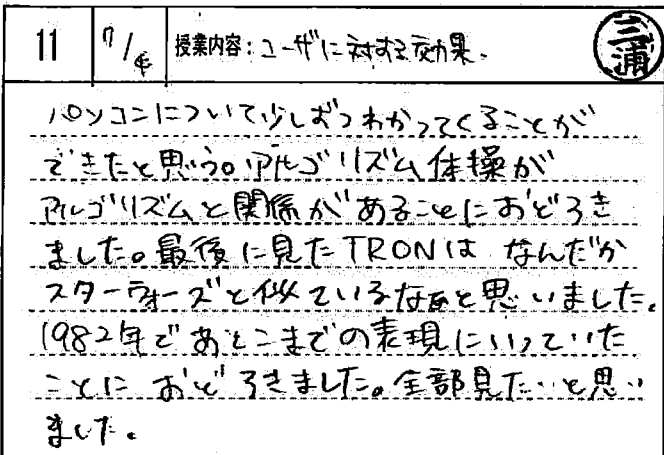 11
7/4
授業内容：ユーザに対する効果.
三浦
パソコンについて少しずつわかってくることが
できたと思う。アルゴリズム体操が
アルゴリズムと関係があることにおどろき
ました。最後に見たTRONは なんだか
スターウォーズと似ているなぁと思いました。
1982年であそこまでの表現にいっていた
ことに おどろきました。全部見たいと思い
ました。